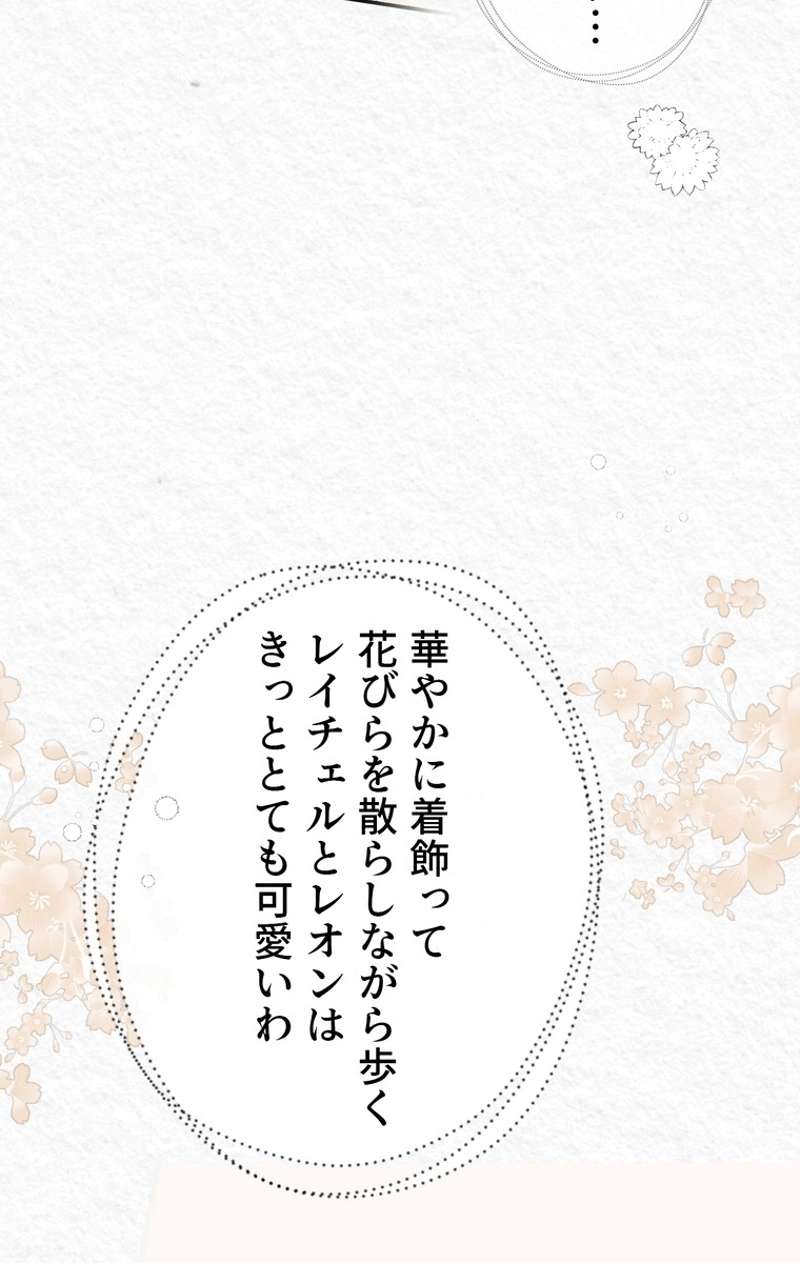 ……
華やかに着飾って
花びらを散らしながら歩く
レイチェルとレオンは
きっととても可愛いわ